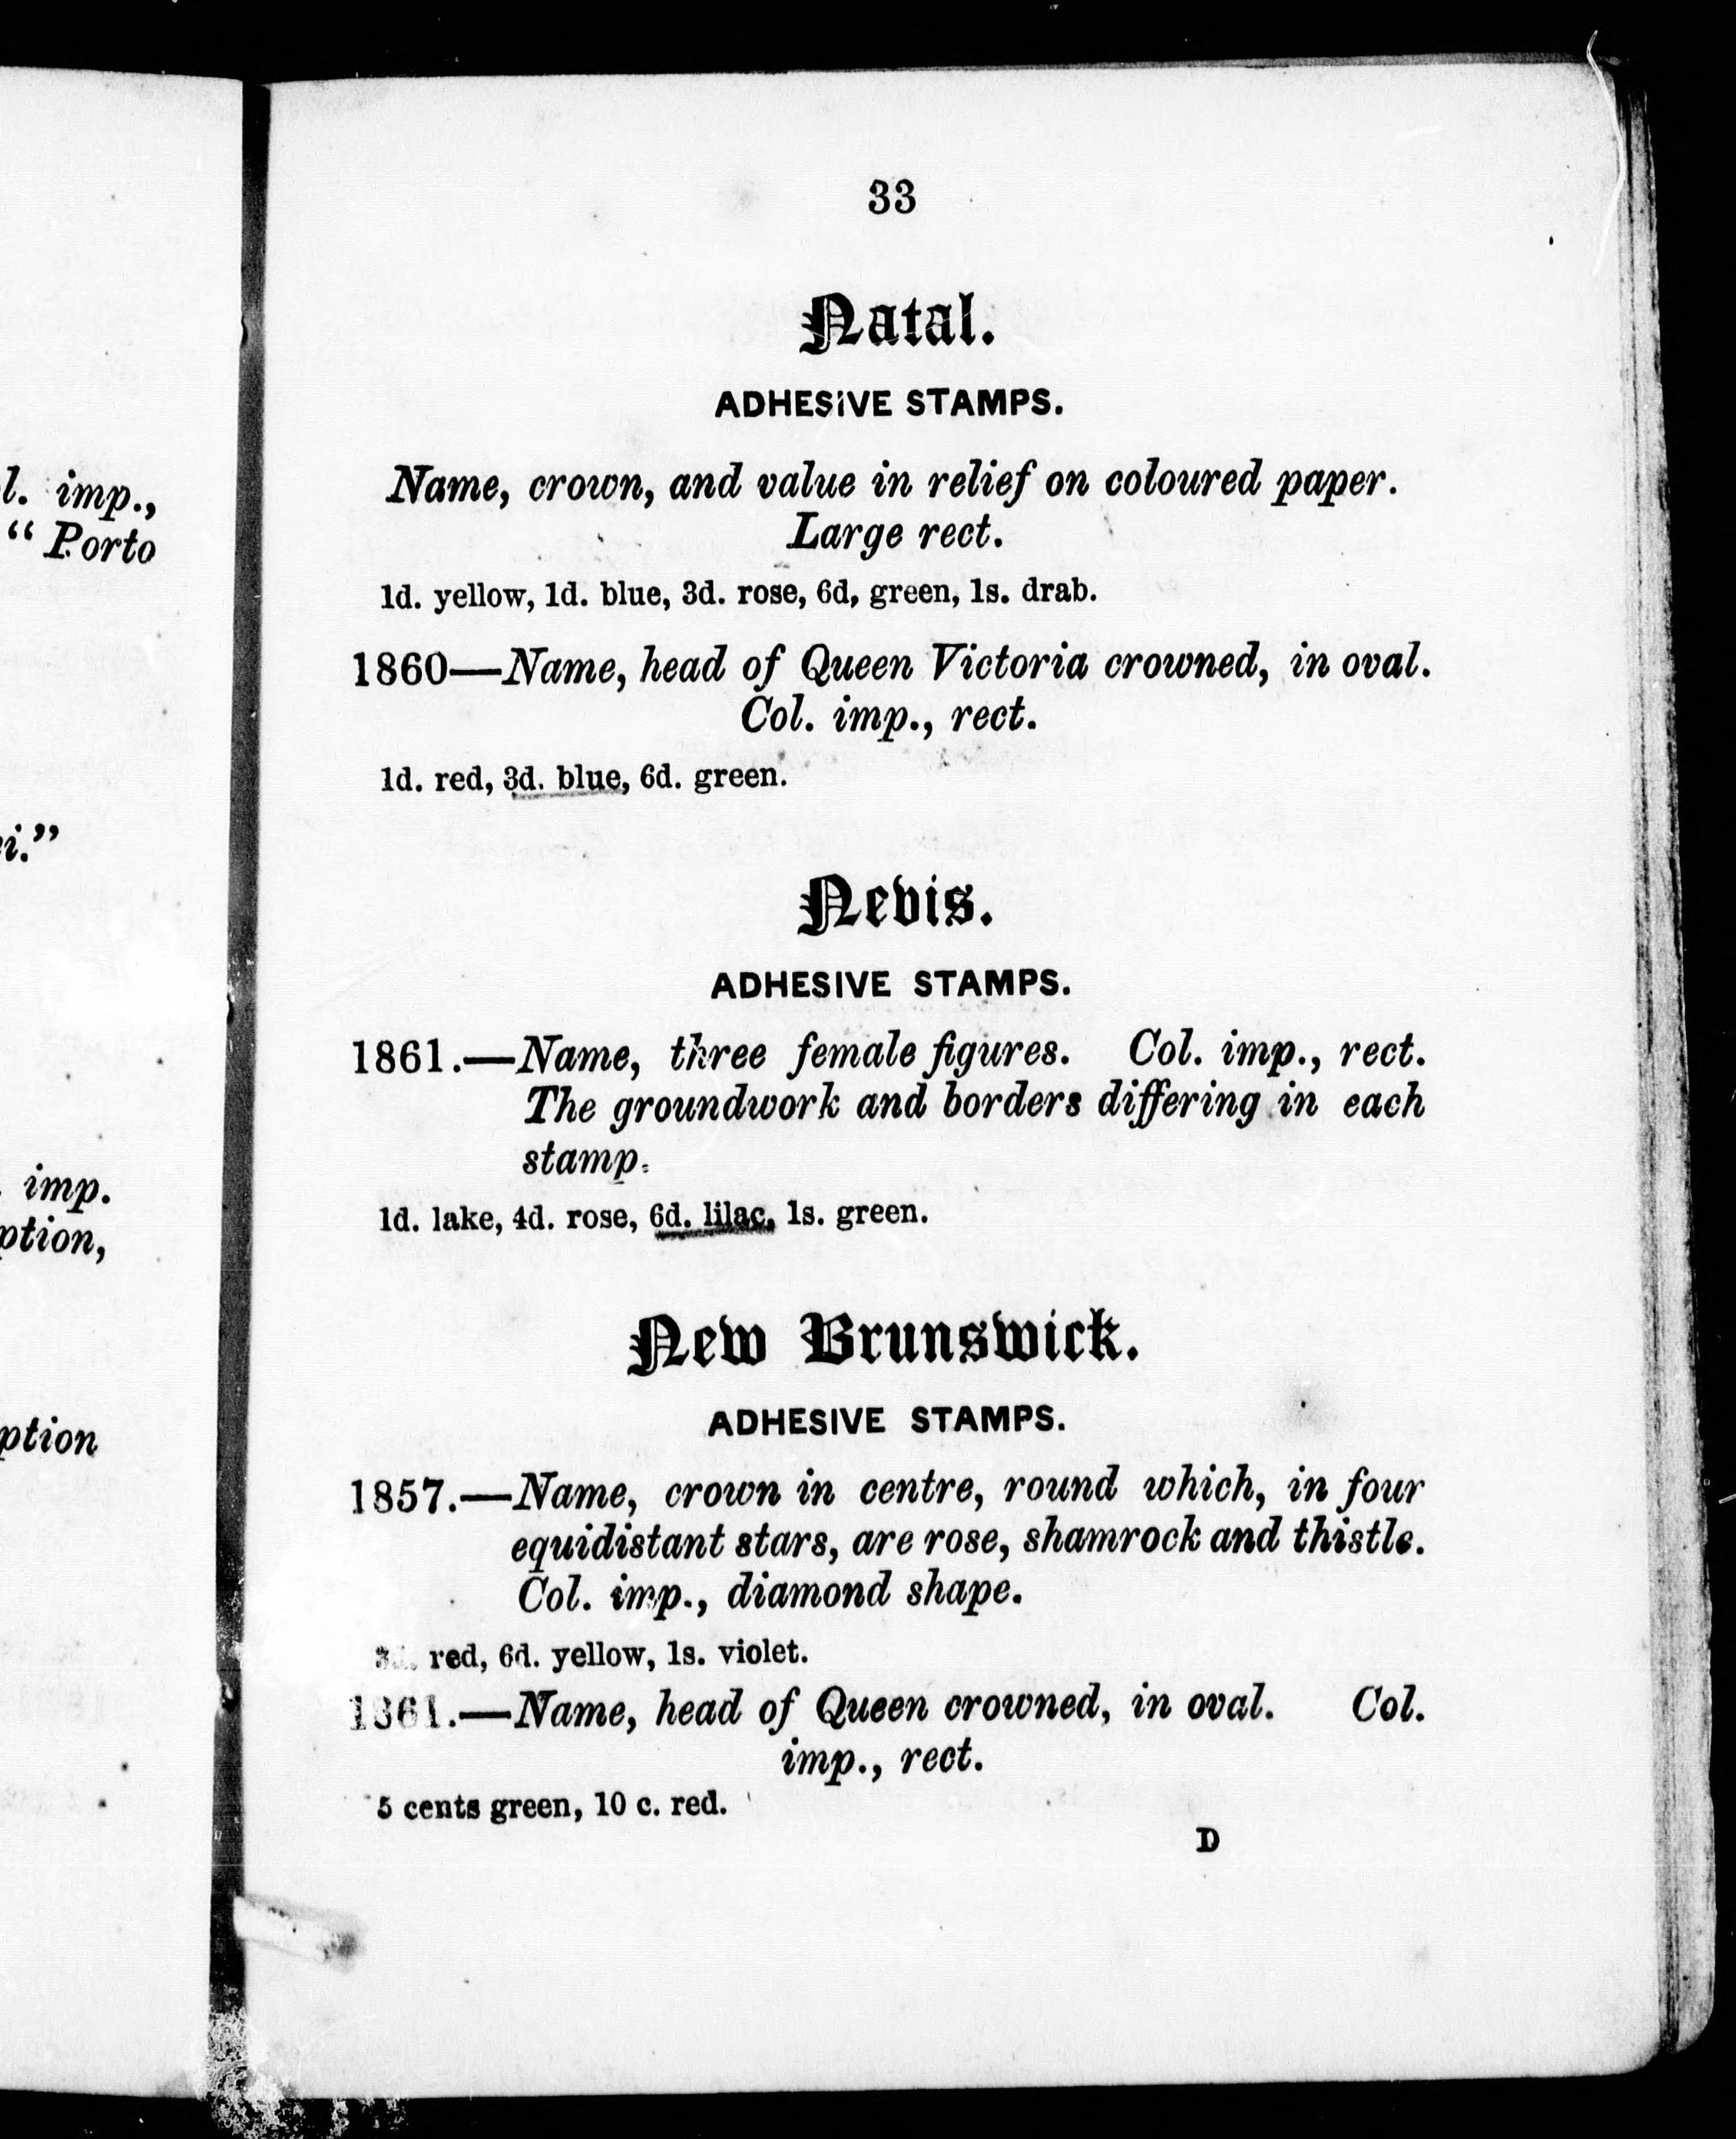 l. imp.,
“ Porto
i.”
imp.
ption,
ption
33
Natal.
ADHESIVE STAMPS.
Name, crown, and value in relief on coloured paper.
Large rect.
1d. yellow, 1d. blue, 3d. rose, 6d, green, 1s. drab.
1860—Name, head of Queen Victoria crowned, in oval.
Col. imp., rect.
1d. red, 3d. blue, 6d. green.
Nevis.
ADHESIVE STAMPS.
1861.—Name, three female figures. Col. imp., rect.
The groundwork and borders differing in each
stamp.
1d. lake, 4d. rose, 6d. lilac, 1s. green.
New Brunswick.
ADHESIVE STAMPS.
1857.—Name, crown in centre, round which, in four
equidistant stars, are rose, shamrock and thistle.
Col. imp., diamond shape.
3d. red, 6d. yellow, 1s. violet.
1861.—Name, head of Queen crowned, in oval. Col.
imp., rect.
5 cents green, 10 c. red.
D